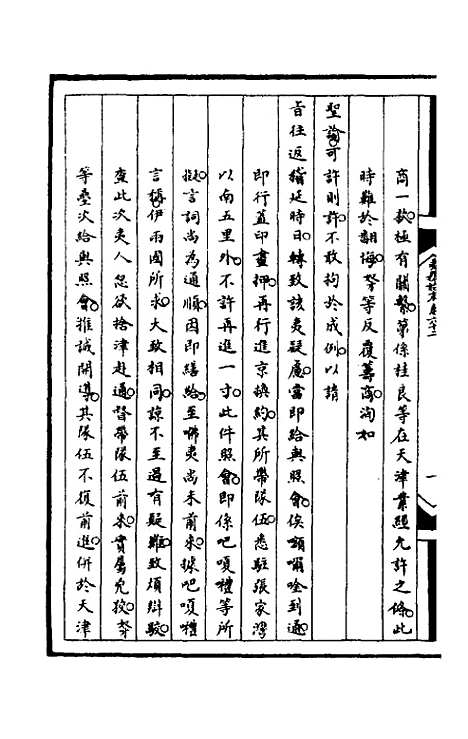 商一款極有關繫第係桂良等在天津業經允許之條此
時難於翻悔孥等反覆籌商洵如
聖諭可許則許不敢拘於成例以請
旨往返稽延時日轉致該夷疑慮當即給與照會俟額嘞唫到通
即行蓋印畫押再行進京換約其所帶隊伍悉駐張家灣
以南五里外不許再進一寸此件照會即係吧嗄禮等所
擬言詞尚為通順因即繕給至㗲夷尚未前來據吧嗄禮
言稱伊兩國所求大致相同諒不至過有疑難致煩辯駮
查此次夷人忽欲捨津赴通督帶隊伍前來實屬兇狡孥
等疊次給與照會推誠開導其隊伍不復前進併於天津